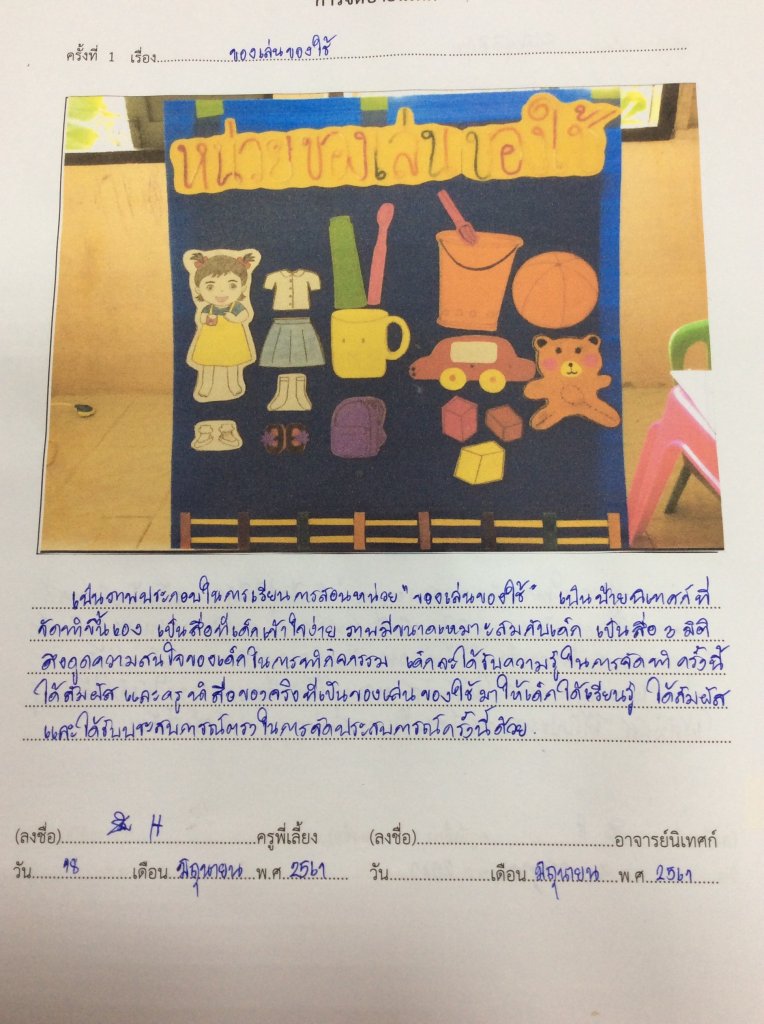 ครั้งที่ 1 เรื่อง ของเล่นของใช้
หน่วยของเล่นของใช้
เป็นภาพประกอบในการเรียนการสอนหน่วย "ของเล่นของใช้" เป็นป้ายนิเทศก์ที่
จัดทำขึ้นเอง เป็นสื่อที่เด็กเข้าใจง่าย ภาพมีขนาดเหมาะสมกับเด็ก เป็นสื่อ 3 มิติ
ดึงดูดความสนใจของเด็กในการทำกิจกรรม เด็กจะได้รับความรู้ในการจัดทำครั้งนี้
ได้สัมผัส และครูทำสื่อของจริงที่เป็นของเล่นของใช้มาให้เด็กได้เรียนรู้ ได้สัมผัส
และได้รับประสบการณ์ตรงในการจัดประสบการณ์ครั้งนี้ด้วย.
(ลงชื่อ) ครูพี่เลี้ยง (ลงชื่อ) อาจารย์นิเทศก์
วัน 18 เดือน มิถุนายน พ.ศ. 2561 วัน เดือน มิถุนายน พ.ศ. 2561